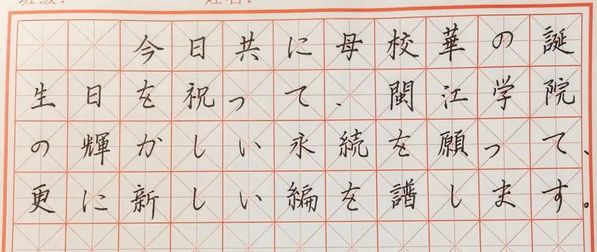 今日共に母校華の誕
生日を祝って、閩江学院
の輝かしい永続を願って、
更に新しい編を譜します。